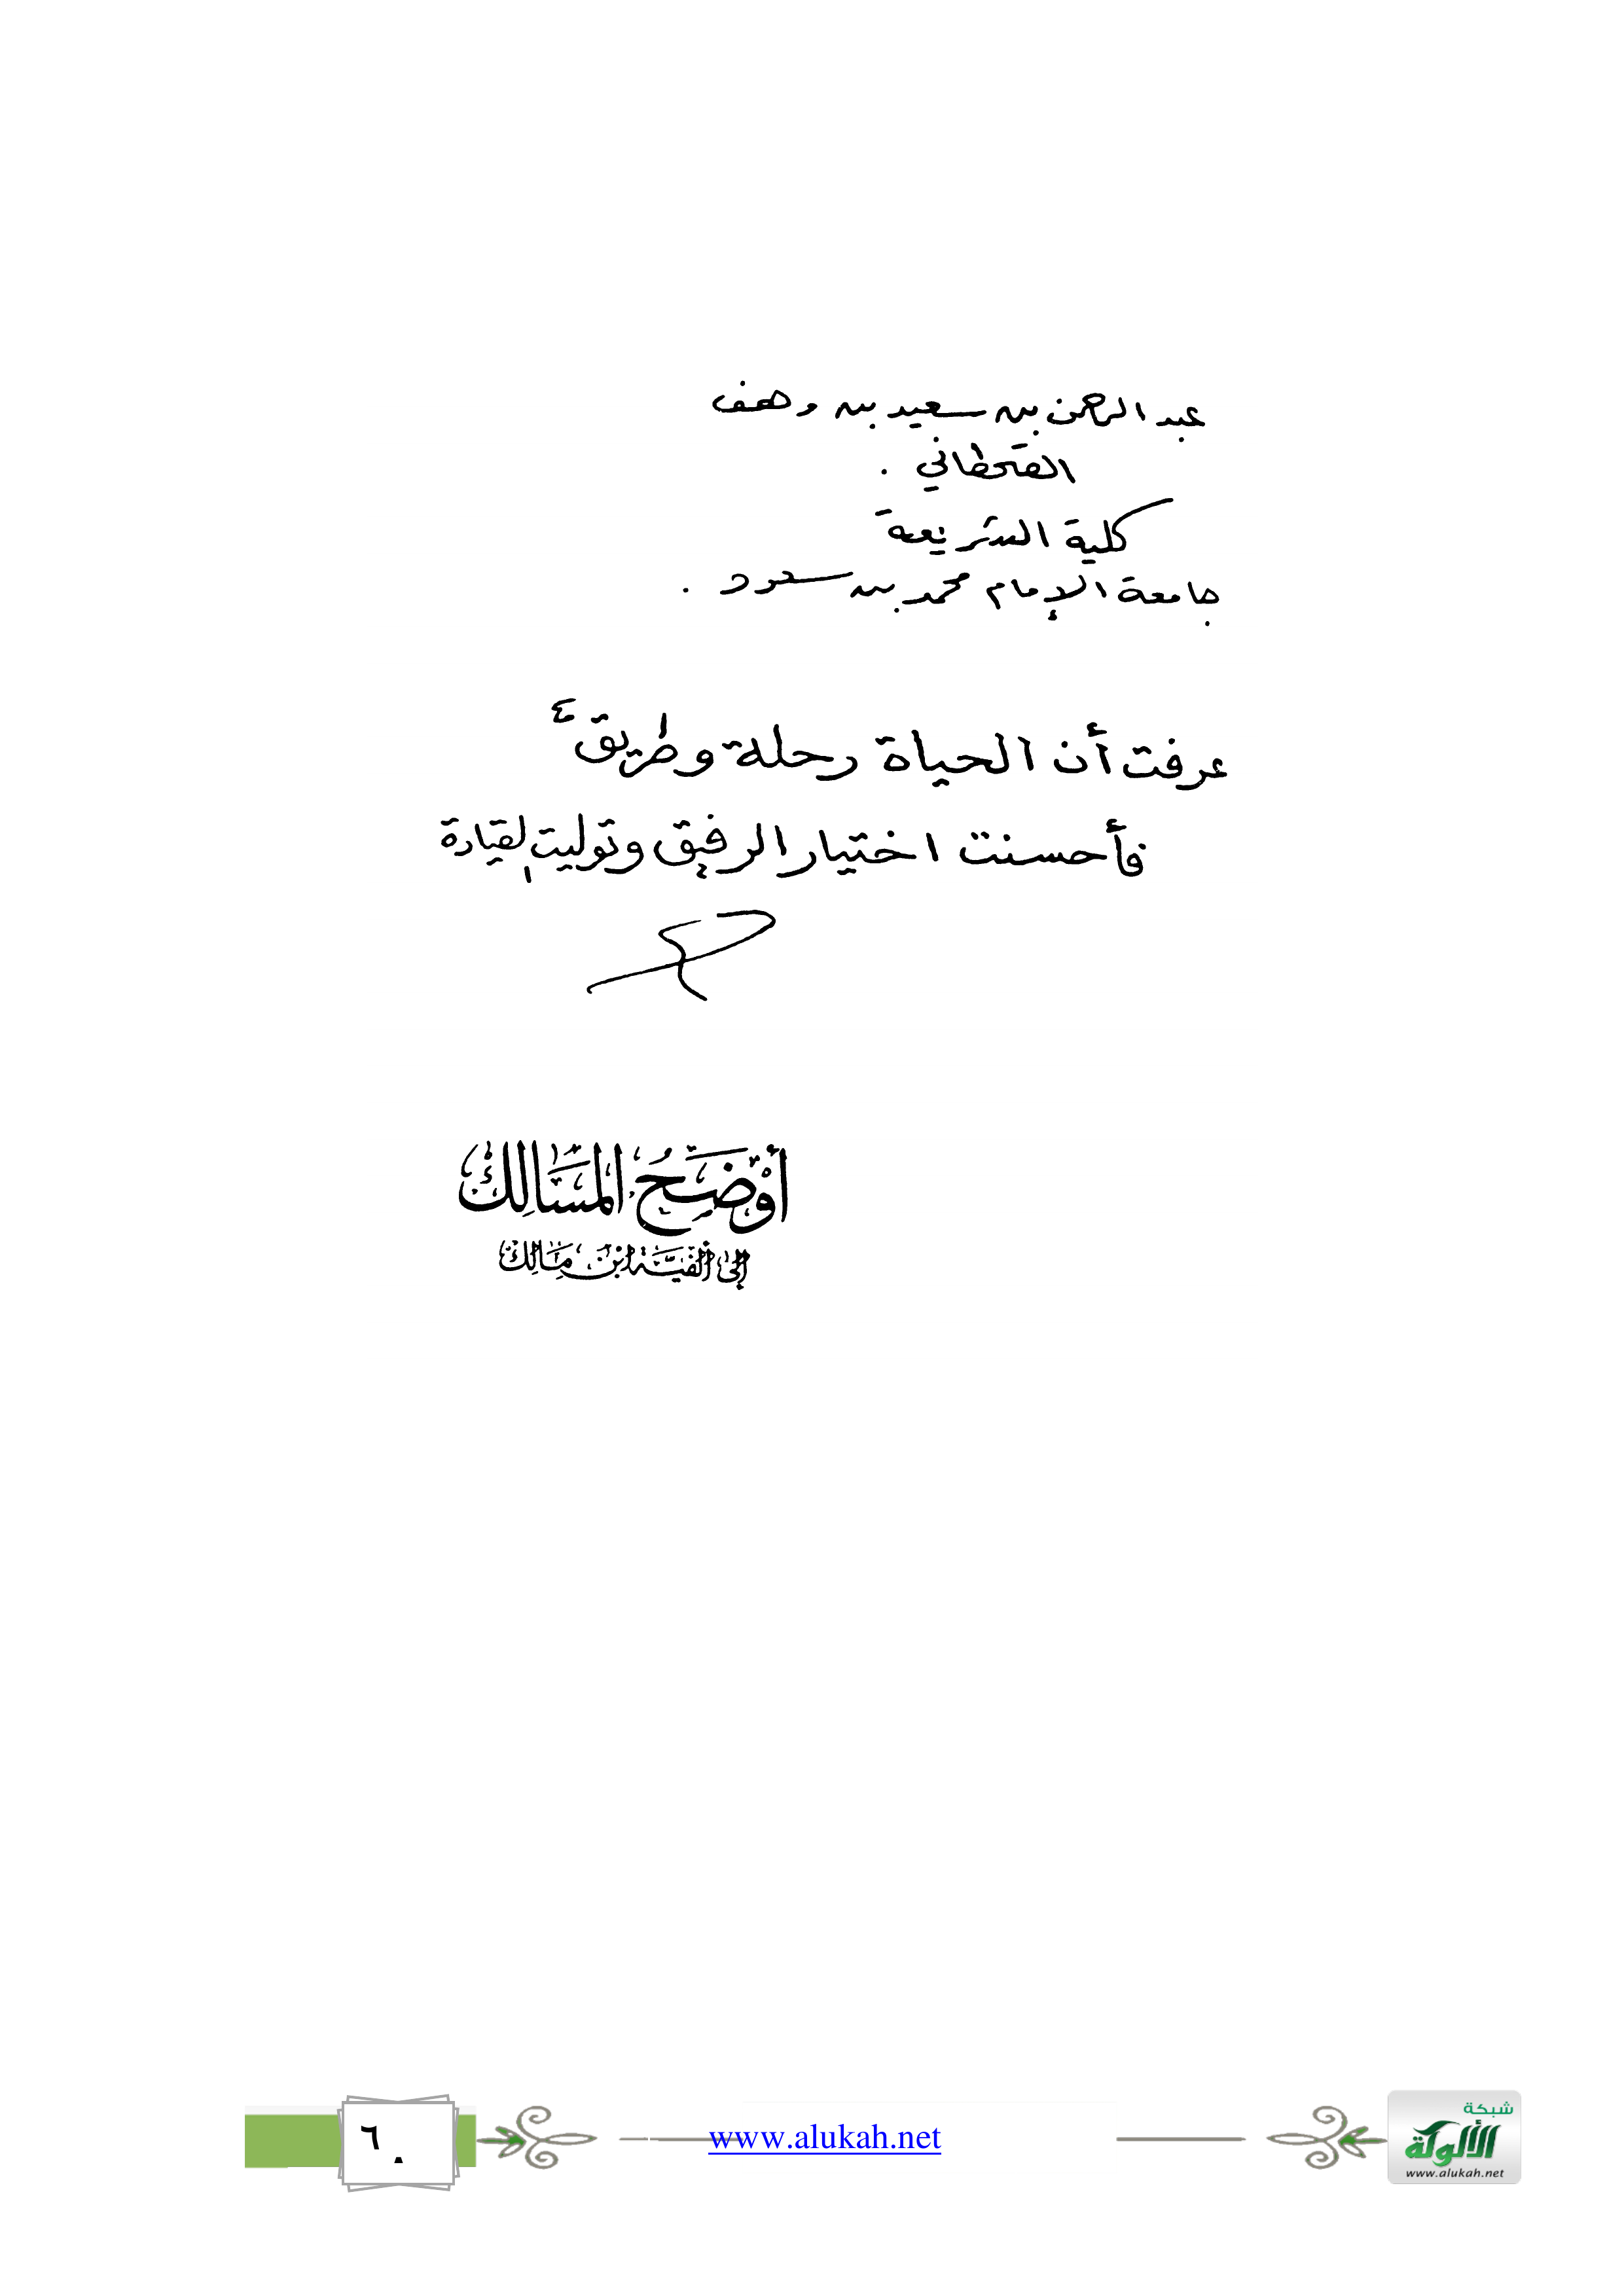 عبد الرحمن بن سعيد بن وهف
القحطاني .
كلية الشريعة
جامعة الإمام محمد بن سعود .
عرفت أن الحياة رحلة وطريق ،
فأحسنت اختيار الرفيق وتوليت القيادة
أَوْضَحُ المَسَالِكْ
إلى ألفيَّة ابن مَالِكْ
٦٠
www.alukah.net
شبكة
الألوكة
www.alukah.net